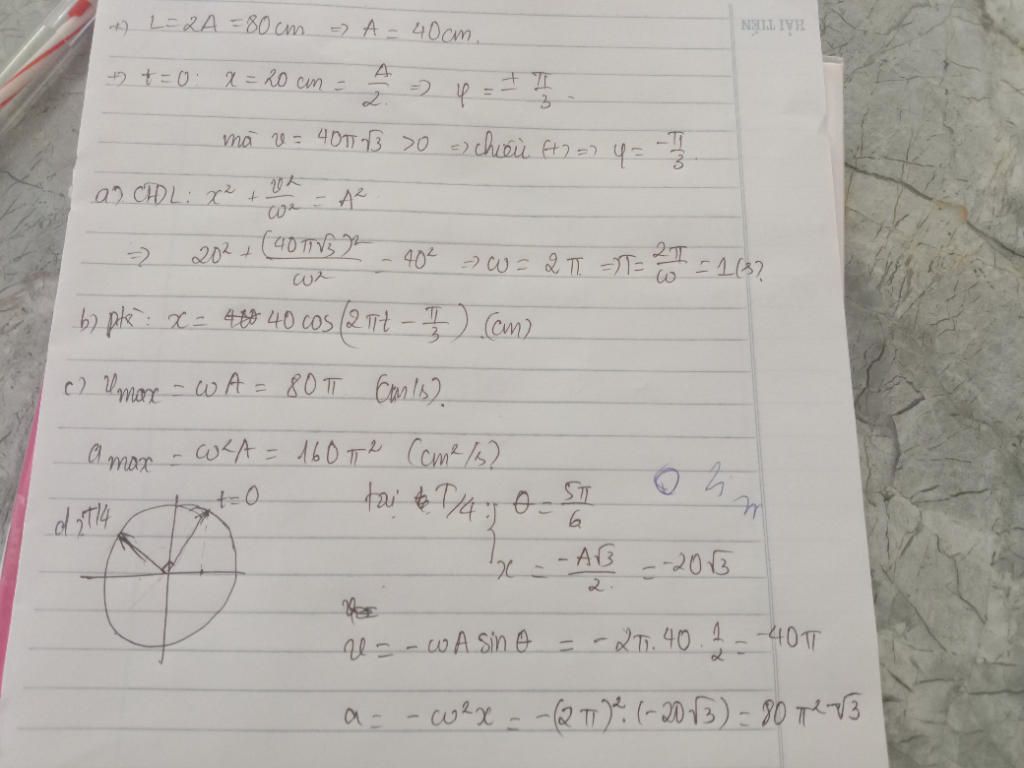 +) L = 2A = 80cm => A = 40cm.
+) t = 0: x = 20 cm = A/2 => φ = ± π/3.
mà v = 40π√3 > 0 => chiều (+) => φ = -π/3.
a) CTĐL: x² + v²/ω² = A²
=> 20² + (40π√3)²/ω² = 40² => ω = 2π => T = 2π/ω = 1(s)
b) ptr: x = 40 cos(2πt - π/3) (cm)
c) vmax = ωA = 80π (cm/s).
amax = ω²A = 160π² (cm²/s)
d) T/4 t=0 tại T/4: θ = 5π/6
x = -A√3/2 = -20√3
v = -ωA sin θ = -2π.40.1/2 = -40π
a = -ω²x = -(2π)².(-20√3) = 80π²√3
HẢI TIẾN